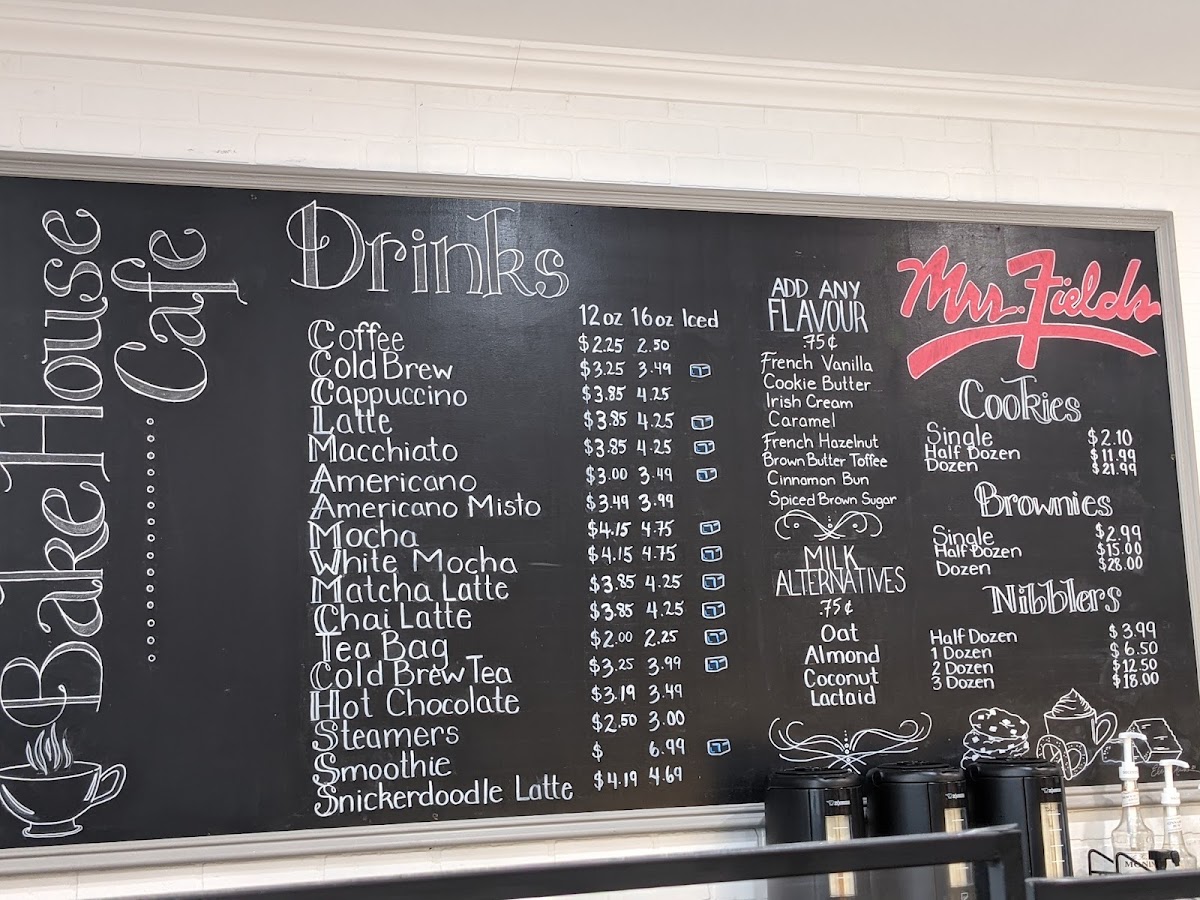 BakeHouse
Cafe
Drinks
12oz 16oz Iced
Coffee $2.25 2.50
Cold Brew $3.25 3.49
Cappuccino $3.85 4.25
Latte $3.85 4.25
Macchiato $3.85 4.25
Americano $3.00 3.49
Americano Misto $3.49 3.99
Mocha $4.15 4.75
White Mocha $4.15 4.75
Matcha Latte $3.85 4.25
Chai Latte $3.85 4.25
Tea Bag $2.00 2.25
Cold Brew Tea $3.25 3.99
Hot Chocolate $3.19 3.49
Steamers $2.50 3.00
Smoothie $ 6.99
Snickerdoodle Latte $4.19 4.69
ADD ANY
FLAVOUR
.75¢
French Vanilla
Cookie Butter
Irish Cream
Caramel
French Hazelnut
Brown Butter Toffee
Cinnamon Bun
Spiced Brown Sugar
MILK
ALTERNATIVES
.75¢
Oat
Almond
Coconut
Lactaid
Mrs. Fields
Cookies
Single $2.10
Half Dozen $11.99
Dozen $21.99
Brownies
Single $2.99
Half Dozen $15.00
Dozen $28.00
Nibblers
Half Dozen $3.99
1 Dozen $6.50
2 Dozen $12.50
3 Dozen $18.00